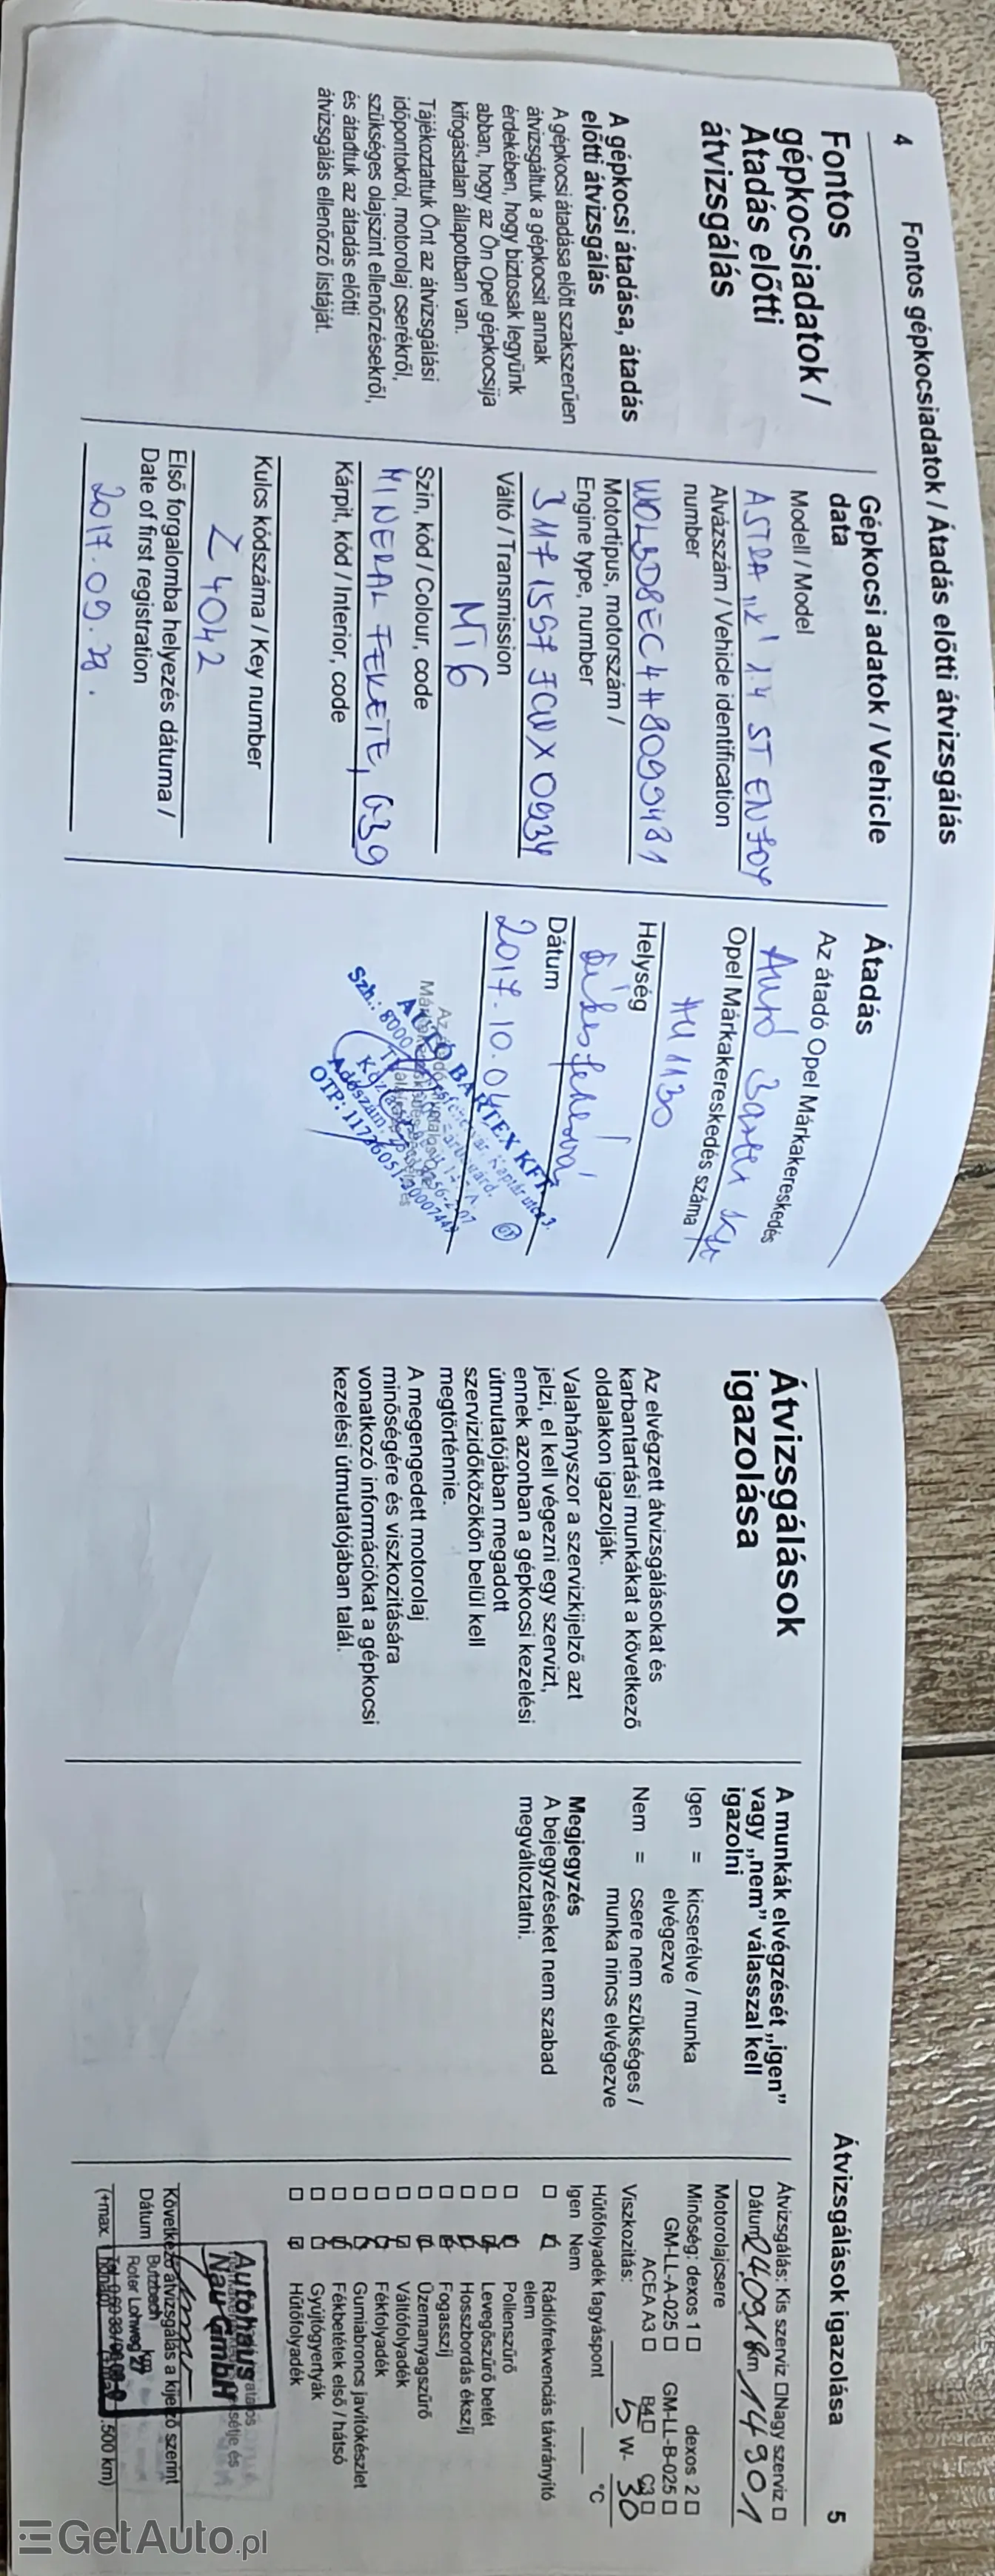 4 Fontos gépkocsiadatok / Átadás előtti átvizsgálás
Fontos
gépkocsiadatok /
Átadás előtti
átvizsgálás
A gépkocsi átadása, átadás
előtti átvizsgálás
A gépkocsi átadása előtt szakszerűen
átvizsgáltuk a gépkocsit annak
érdekében, hogy biztosak legyünk
abban, hogy az Ön Opel gépkocsija
kifogástalan állapotban van.
Tájékoztattuk Önt az átvizsgálási
időpontokról, motorolaj cserékről,
szükséges olajszint ellenőrzésekről,
és átadtuk az átadás előtti
átvizsgálás ellenőrző listáját.
Gépkocsi adatok / Vehicle
data
Modell / Model
ASTRA "K" 1.4 ST ENJOY
Alvázszám / Vehicle identification
number
W0LBD8EC4H8099481
Motortípus, motorszám /
Engine type, number
Váltó / Transmission
MT6
Szín, kód / Colour, code
MINERAL FEKETE, G39
Kárpit, kód / Interior, code
Kulcs kódszáma / Key number
Z4042
Első forgalomba helyezés dátuma /
Date of first registration
2017.09.28.
Átadás
Az átadó Opel Márkakereskedés
Autó Bartex Kft
Opel Márkakereskedés száma
HU1130
Helység
Székesfehérvár
Dátum
2017.10.04
AUTO BARTEX KFT.
Szh.: 8000
Adószám:
OTP: 11736051-20007449
Átvizsgálások igazolása 5
Átvizsgálások
igazolása
Az elvégzett átvizsgálásokat és
karbantartási munkákat a következő
oldalakon igazolják.
Valahányszor a szervizkijelző azt
jelzi, el kell végezni egy szervizt,
ennek azonban a gépkocsi kezelési
útmutatójában megadott
szervizidőközökön belül kell
megtörténnie.
A megengedett motorolaj
minőségére és viszkozitására
vonatkozó információkat a gépkocsi
kezelési útmutatójában talál.
A munkák elvégzését „igen”
vagy „nem” válasszal kell
igazolni
Igen = kicserélve / munka
elvégezve
Nem = csere nem szükséges /
munka nincs elvégezve
Megjegyzés
A bejegyzéseket nem szabad
megváltoztatni.
Átvizsgálás: Kis szerviz Nagy szerviz
Dátum 24.09.18 km 14901
Motorolajcsere
Minőség: dexos 1 dexos 2
GM-LL-A-025 GM-LL-B-025
ACEA A3 B4 C3
Viszkozitás: 5 W- 30
Hűtőfolyadék fagyáspont °C
Igen Nem
Rádiófrekvenciás távirányító
elem
Pollenszűrő
Levegőszűrő betét
Hosszbordás ékszíj
Fogasszíj
Üzemanyagszűrő
Váltófolyadék
Fékfolyadék
Gumiabroncs javítókészlet
Fékbetétek első / hátsó
Gyújtógyertyák
Hűtőfolyadék
Autohaus
Nau GmbH
Következő átvizsgálás a kijelző szerint
Dátum km
Butzbach
Roter Lohweg 27
(+max. 500 km)
GetAuto.pl